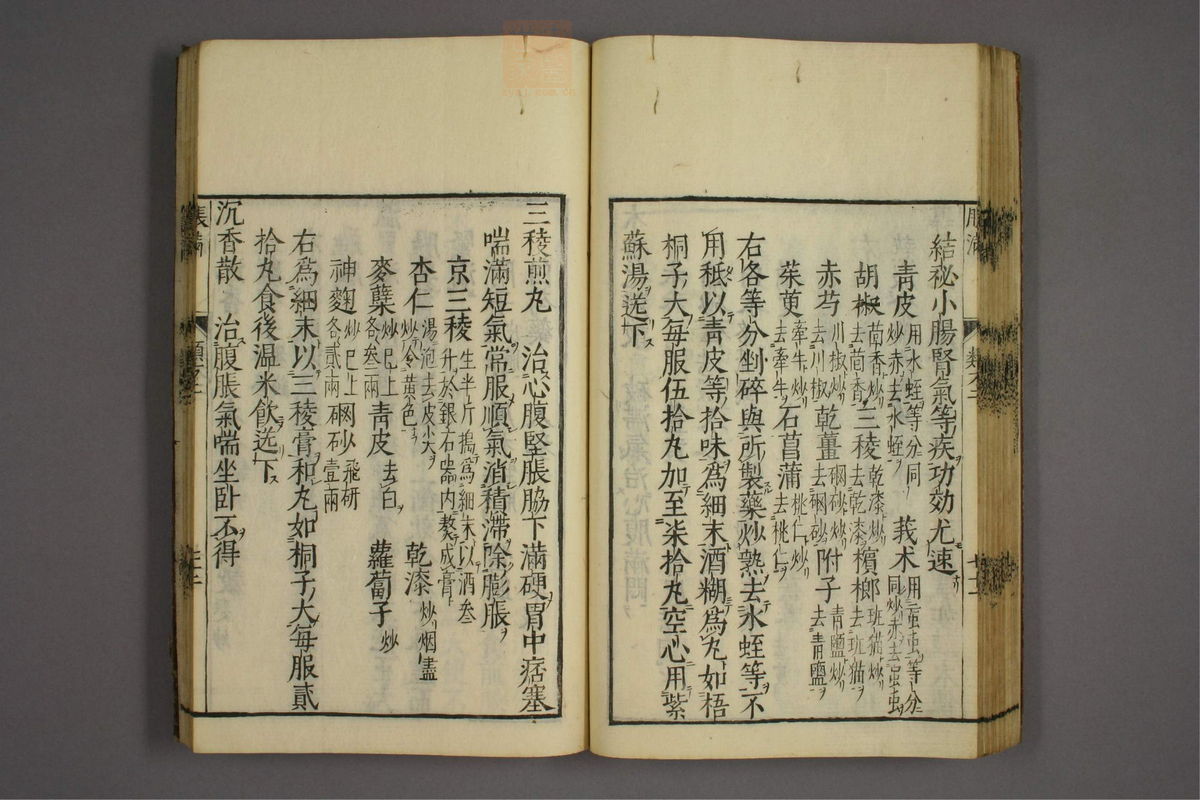 結秘小腸腎氣等疾功効尤速
青皮用水蛭等分同炒赤去水蛭 莪术用䖟虫等分同炒赤去䖟虫
胡椒茴香炒去茴香 三稜乾漆炒去乾漆 檳榔班猫炒去班猫
赤芍川椒炒去川椒 乾薑硇砂炒去硇砂 附子青鹽炒去青鹽
茱萸牽牛炒去牽牛 石菖蒲桃仁炒去桃仁
右各等分剉碎與所製藥炒熟去水蛭等不
用秪以青皮等拾味為細末酒糊為丸如梧
桐子大每服伍拾丸加至柒拾丸空心用紫
蘇湯送下
三稜煎丸 治心腹堅脹脇下滿硬胃中痞塞
喘滿短氣常服順氣消積滯除膨脹
京三稜生半斤搗為細末以酒叁升於銀石器内熬成膏
杏仁湯泡去皮尖炒令黃色 乾漆炒烟盡
麥蘖炒巳上各叁兩 青皮去白 蘿蔔子炒
神麯炒巳上各貳兩 硇砂飛研壹兩
右為細末以三稜膏和丸如桐子大每服貳
拾丸食後温米飲送下
沉香散 治腹脹氣喘坐卧不得
脹滿